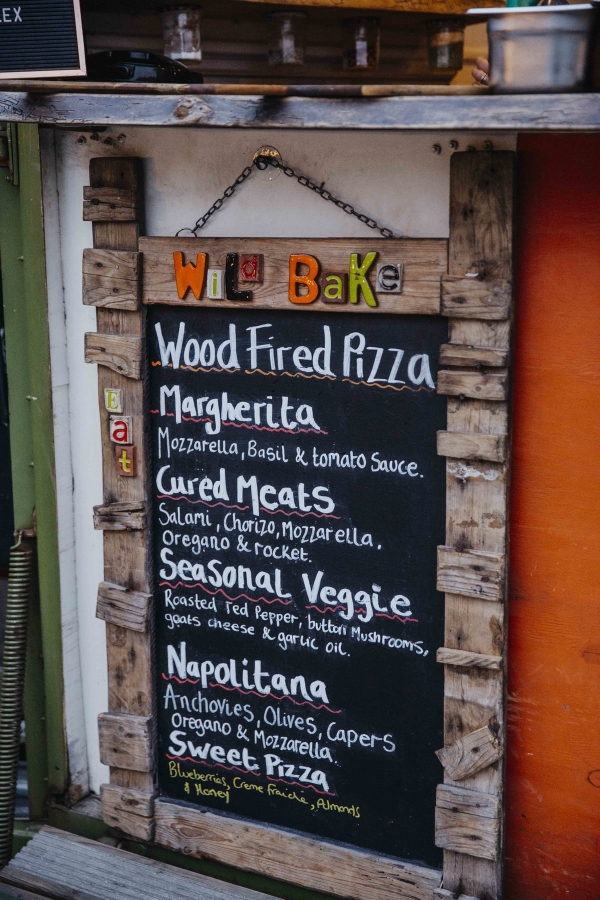 LEX
Wild Bake
Eat
Wood Fired Pizza
Margherita
Mozzarella, Basil & tomato Sauce.
Cured Meats
Salami, Chorizo, Mozzarella.
Oregano & rocket.
Seasonal Veggie
Roasted red Pepper, button Mushrooms,
goats cheese & garlic oil.
Napolitana
Anchovies, Olives, Capers
Oregano & Mozzarella.
Sweet Pizza
Blueberries, Creme Fraiche, Almonds
& Honey